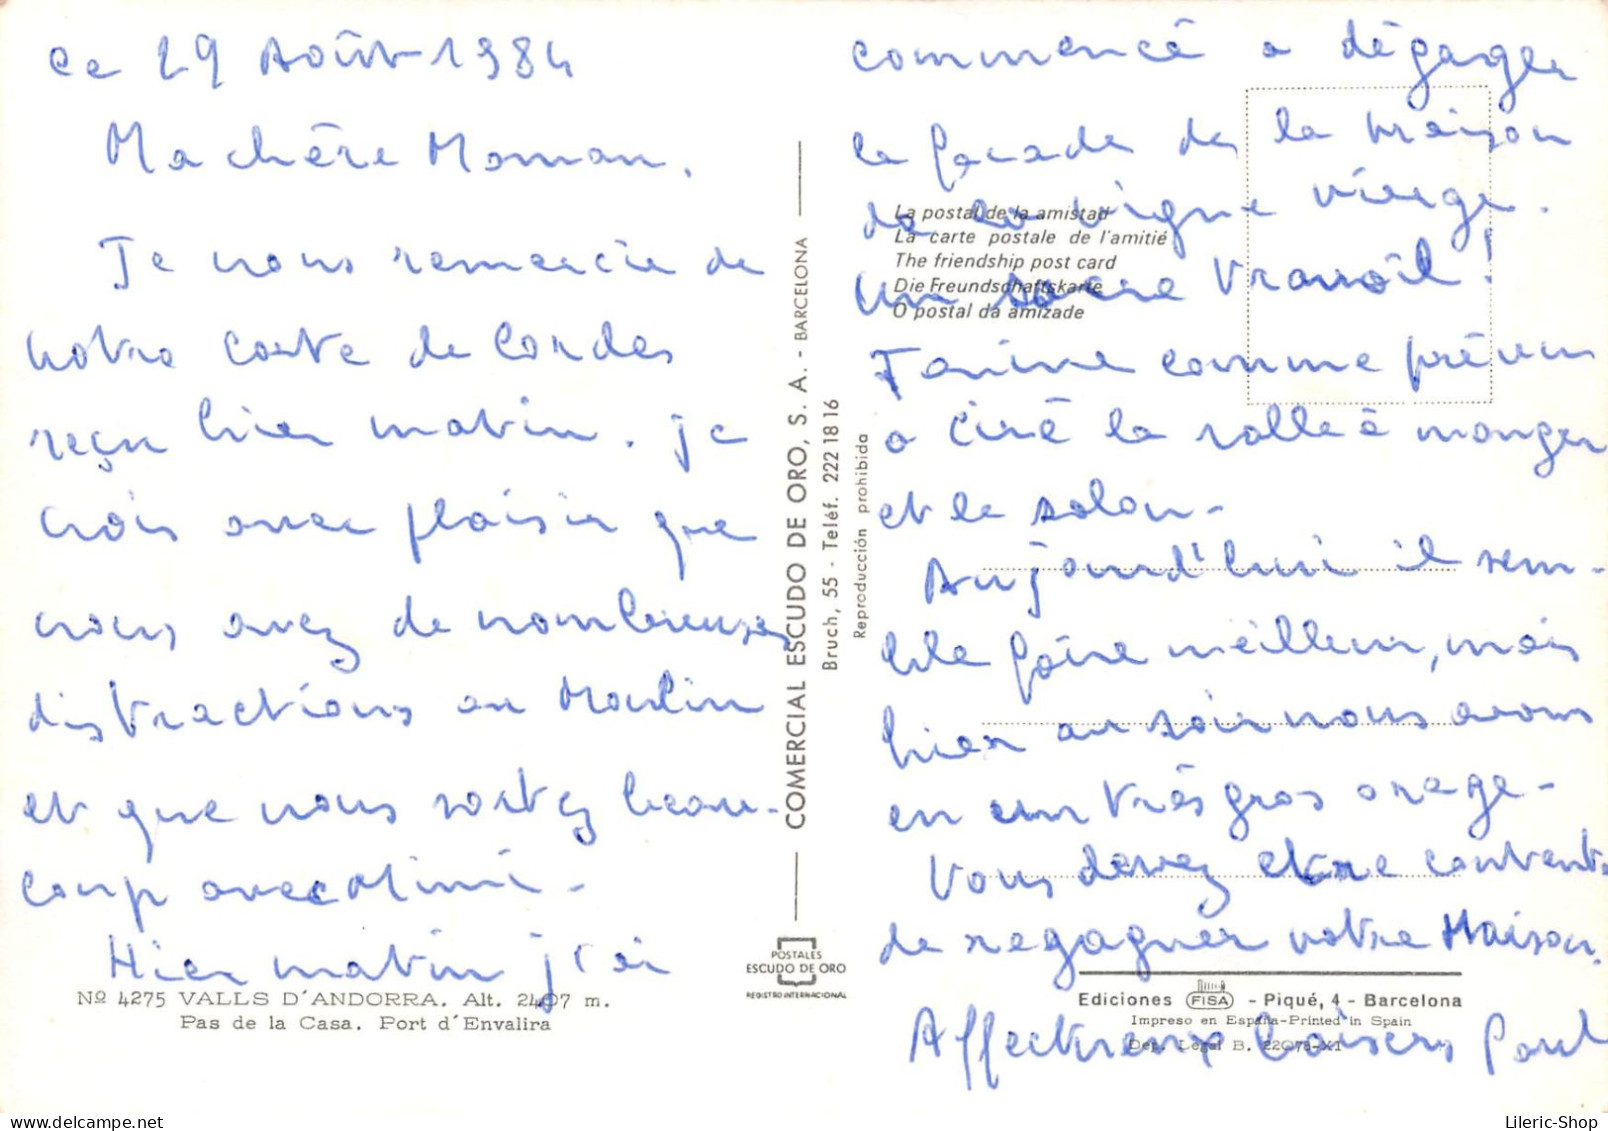 Ce 29 Août 1984
Ma chère Maman,
Je vous remercie de
votre carte de Cordes
reçu hier matin. je
vois avec plaisir que
vous avez de nombreuses
distractions au Moulin
et que vous sortez beau-
coup avec Mimi -
Hier matin j'ai
Nº 4275 VALLS D'ANDORRA. Alt. 2407 m.
Pas de la Casa. Port d'Envalira
COMERCIAL ESCUDO DE ORO, S. A. - BARCELONA
Bruch, 55 - Teléf. 222 18 16
Reproducción prohibida
POSTALES
ESCUDO DE ORO
REGISTRO INTERNACIONAL
commencé a dégager
la façade de la maison
de la vigne vierge.
un sacré travail!
La postal de la amistad
La carte postale de l'amitié
The friendship post card
Die Freundschaftskarte
O postal da amizade
comme prévu
a ciré la salle à manger
et le salon -
Aujourd'hui il sem-
ble faire meilleur, mais
hier au soir nous avons
eu un très gros orage -
Vous devez etre contente
de regagner votre Maison.
Ediciones FISA - Piqué, 4 - Barcelona
Impreso en España-Printed in Spain
Dep. Legal B. 22073-XI
Affectueux baisers Paul
Lileric-Shop